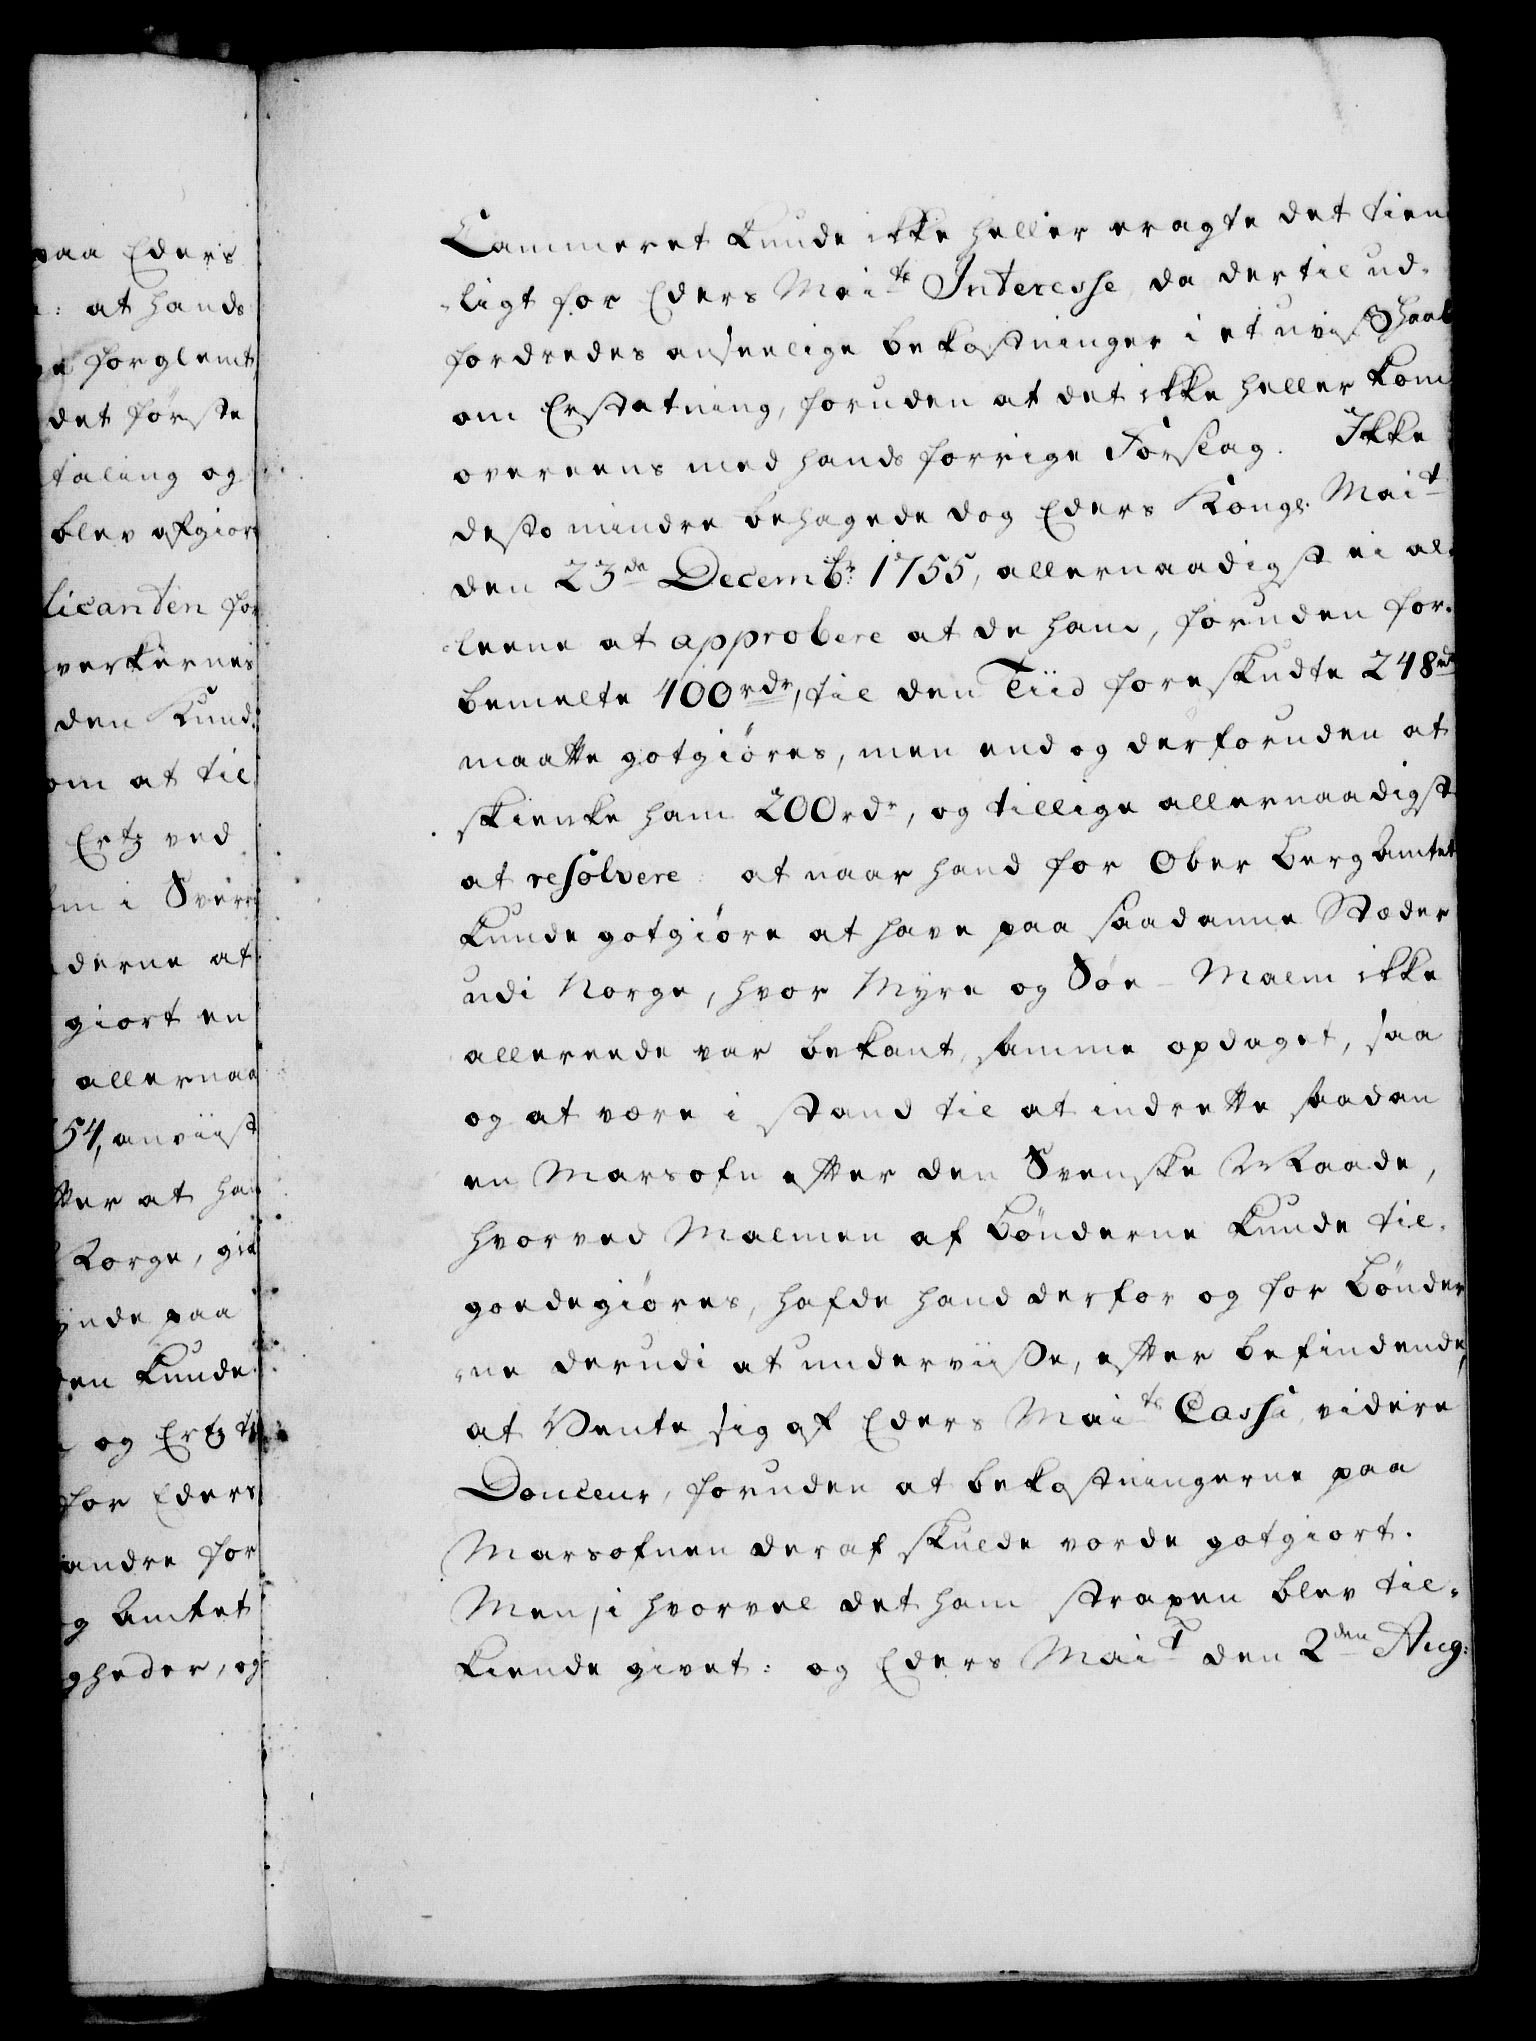 paa Eders
at hands
forglemt
det første
taling og
blev afgiort
licanten for
verkernes
den Kund-
om at til
Ertz ved
i Sverri
derne at
giort en
allernaa
54, anviist
at han
Norge, gik
paa
Kunde
og Ertz til
for Eders
andre for
Amtet
gheder, og
Cammeret kunde ikke heller eragte det tien
-ligt for Eders Maits Interesse, da der til ud-
fordredes anseelige bekostninger i et uvist Haab
om Erstatning, foruden at det ikke heller kom
overeens med hands forrige Forslag. Ikke
desto mindre behagede dog Eders Kongl. Mait
den 23de Decembr: 1755, allernaadigst ei al-
-leene at approbere at de ham, foruden for-
bemelte 400 rdr, til den Tiid foreskudte 248 rdr
maatte gotgiøres, men end og derforuden at
skienke ham 200 rdr, og tillige allernaadigst
at resolvere: at naar hand for Ober Berg Amtet
kunde gotgiøre at have paa saadanne Stæder
udi Norge, hvor Myre og Søe-Malm ikke
allereede var bekant, samme opdaget, saa
og at være i stand til at indrette saadan
en Marsofn efter den Svenske Maade,
hvorved Malmen af Bønderne kunde til-
goedegiøres, hafde hand derfor og for Bønder
-ne derudi at underviise, efter befindende,
at Vente sig af Eders Maits Cassa videre
Douceur, foruden at bekostningerne paa
Marsofnen deraf skulde vorde gotgiort.
Men, i hvorvel det ham straxen blev til-
kiende givet: og Eders Mait den 2den Aug: